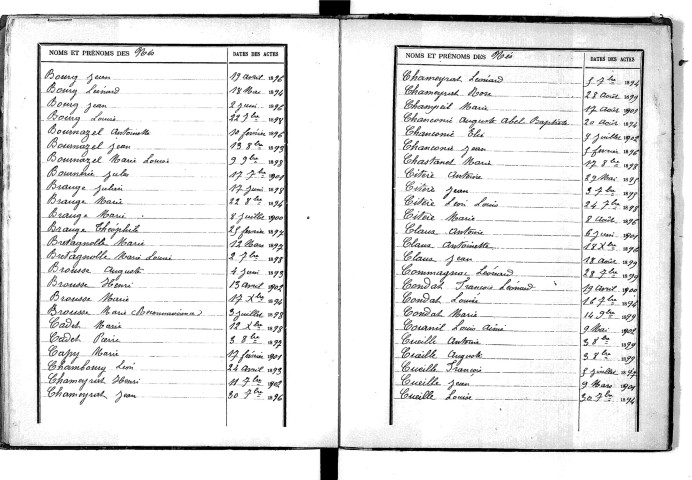 NOMS ET PRÉNOMS DES Nés DATES DES ACTES
Bourg Jean 19 avril 1896
Bourg Léonard 18 Mai 1894
Bourg Jean 2 juin 1896
Bourg Louis 22 7bre 1898
Bournazel Antoinette 10 février 1896
Bournazel Jean 13 8bre 1893
Bournazel Marie Louise 9 9bre 1898
Bournerie Jules 17 7bre 1901
Brauge Julien 17 juin 1898
Brauge Marie 22 8bre 1894
Brauge Marie 8 juillet 1900
Brauge Théophile 25 février 1897
Bretagnolle Marie 12 Mars 1897
Bretagnolle Marie Louise 2 7bre 1898
Brousse Auguste 4 juin 1893
Brousse Henri 13 avril 1902
Brousse Marie 17 Xbre 1894
Brousse Marie 3 juillet 1898
Cadet Marie 12 Xbre 1898
Cadet Pierre 3 8bre 1897
Capy Marie 17 février 1901
Chambourg Léon 24 avril 1893
Chameyrat Henri 11 7bre 1902
Chameyrat Jean 30 7bre 1896
NOMS ET PRÉNOMS DES Nés DATES DES ACTES
Chameyrat Léonard 5 7bre 1894
Chameyrat Rose 28 Août 1899
Marie 17 Août 1901
Chanconie Auguste Abel Baptiste 20 août 1894
Chanconie Elie 9 juillet 1902
Chanconie Jean 5 février 1896
Chastanet Marie 17 8bre 1898
Citère Antoine 29 Mai 1895
Citère Jean 2 7bre 1895
Citère Léon Louis 24 7bre 1898
Citère Marie 8 Août 1896
Claux Antoine 6 juin 1901
Claux Antoinette 18 Xbre 1896
Claux Jean 18 Août 1899
Commagnac Léonard 28 7bre 1899
Condat François Léonard 19 Avril 1900
Condat Louise 16 7bre 1894
Condat Marie 14 9bre 1899
Cournil Louis Aimé 9 Mai 1902
Cueille Antoine 3 8bre 1899
Cueille Auguste 3 8bre 1899
Cueille François 5 juillet 1897
Cueille Jean 9 Mars 1901
Cueille Louise 30 7bre 1894